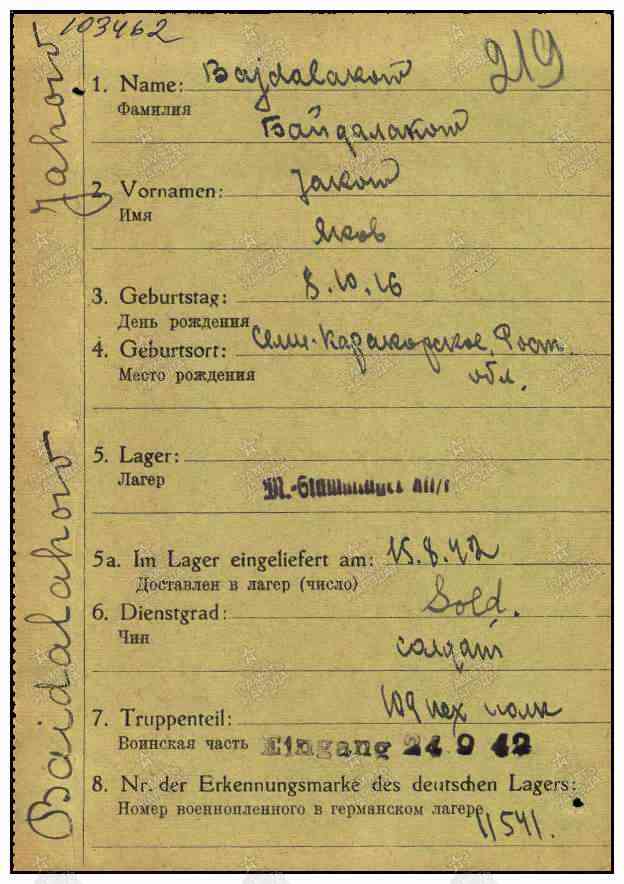 103462
219
1. Name: Bajdalakow
Фамилия
Байдалаков
2. Vornamen: Jakow
Имя
Яков
3. Geburtstag: 8.10.16
День рождения
4. Geburtsort: Семи-Каракорское, Рост.
Место рождения обл.
5. Lager:
Лагер
5a. Im Lager eingeliefert am: 15.8.42
Доставлен в лагер (число)
6. Dienstgrad: Sold.
Чин солдат
7. Truppenteil: пех полк
Воинская часть Eingang 24 9 42
8. Nr. der Erkennungsmarke des deutschen Lagers:
Номер военнопленного в германском лагере 11541.
Baidalakow Jakow